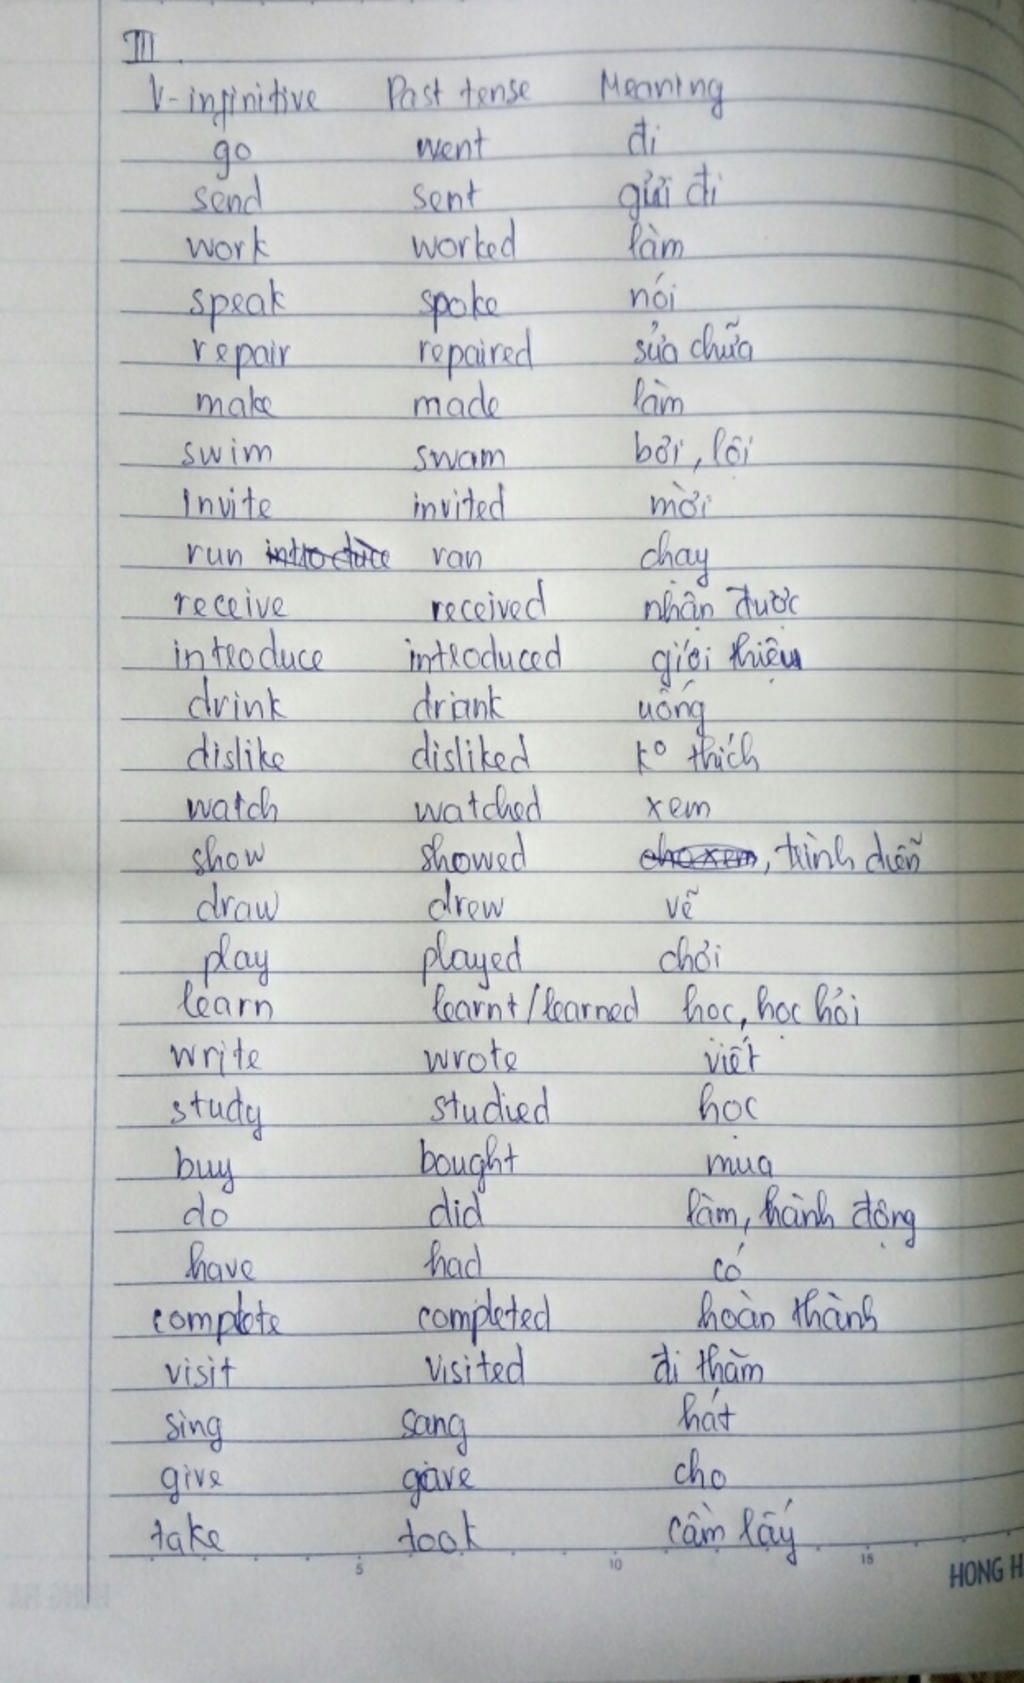 III
V-infinitive Past tense Meaning
go went đi
send sent gửi đi
work worked làm
speak spoke nói
repair repaired sửa chữa
make made làm
swim swam bơi, lội
Invite invited mời
run introduce ran chạy
receive received nhận được
introduce introduced giới thiệu
drink drank uống
dislike disliked kº thích
watch watched xem
show showed cho xem, trình diễn
draw drew vẽ
play played chơi
learn learnt/learned học, học hỏi
write wrote viết
study studied học
buy bought mua
do did làm, hành động
have had có
complete completed hoàn thành
visit visited đi thăm
sing sang hát
give gave cho
take took cầm lấy
5 10 15
HONG H